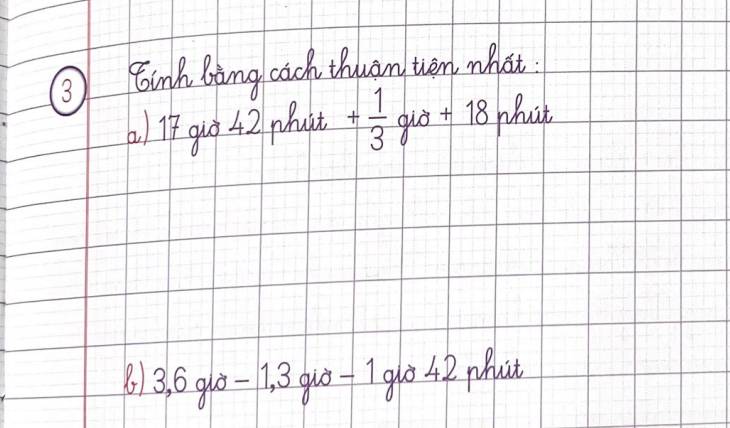 3 Tính bằng cách thuận tiện nhất:
a) 17 giờ 42 phút + 1/3 giờ + 18 phút
b) 3,6 giờ - 1,3 giờ - 1 giờ 42 phút